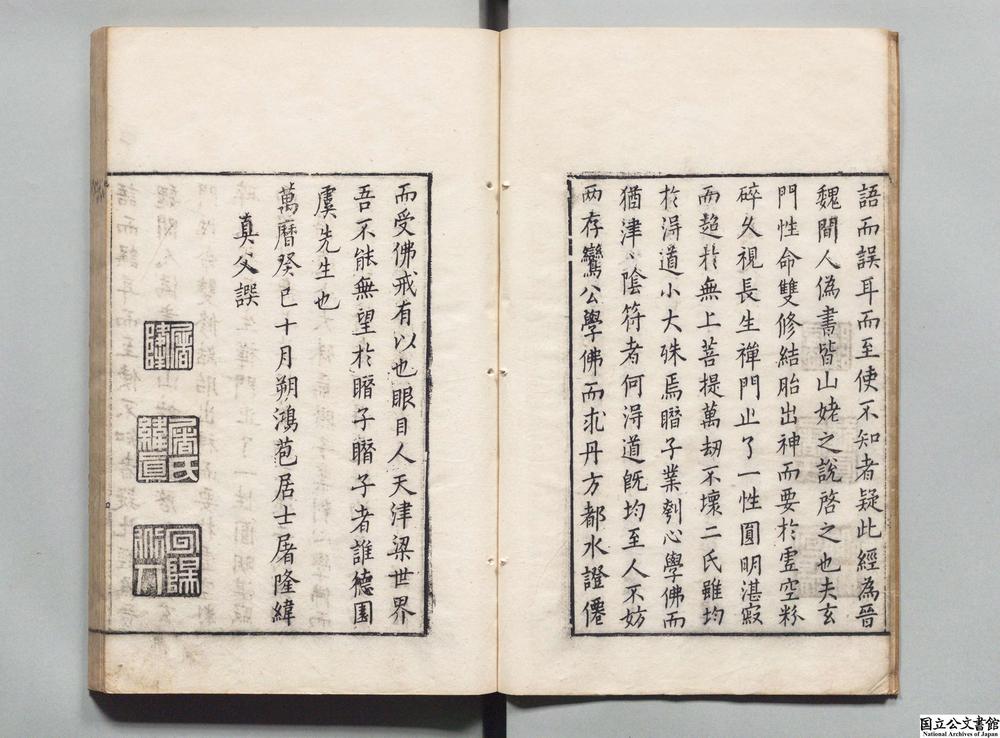 語而誤耳而至使不知者疑此經為晉
魏間人偽書皆山姥之說啓之也夫玄
門性命雙修結胎出神而要於虛空粉
碎久視長生禪門止了一性圓明湛寂
而超於無上菩提萬劫不壞二氏雖均
於淂道小大殊焉瞃子業刳心學佛而
猶津〻陰符者何淂道旣均至人不妨
两存鸞公學佛而求丹方都水證僊
而受佛戒有以也眼目人天津梁世界
吾不能無望於瞃子瞃子者誰德園
虞先生也
萬曆癸巳十月朔鴻苞居士屠隆緯
真父譔
屠隆
屠氏緯真
国立公文書館
National Archives of Japan